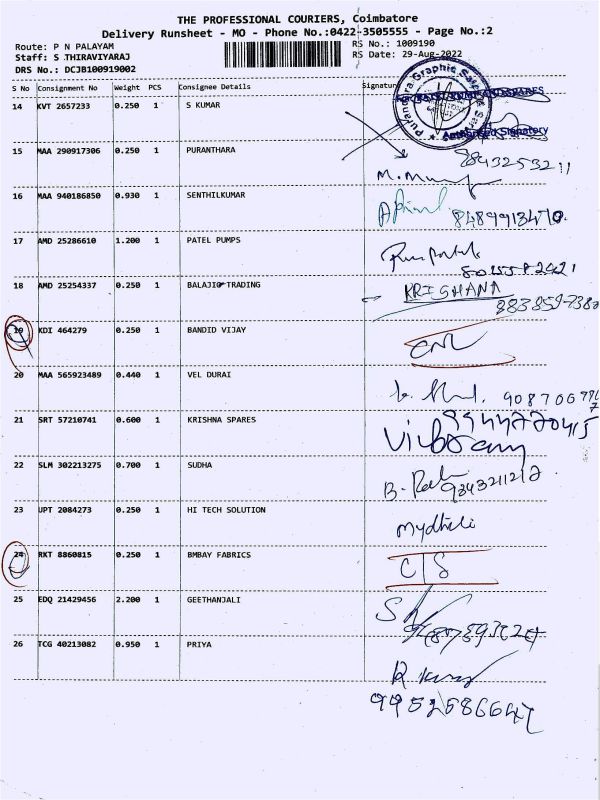 THE PROFESSIONAL COURIERS, Coimbatore
Delivery Runsheet - MO - Phone No.:0422-3505555 - Page No.:2
Route: P N PALAYAM RS No.: 1009190
Staff: S THIRAVIYARAJ RS Date: 29-Aug-2022
DRS No.: DCJB100919002
S No Consignment No Weight PCS Consignee Details Signature
14 KVT 2657233 0.250 1 S KUMAR
Authorised Signatory
15 MAA 290917306 0.250 1 PURANTHARA
9843253211
16 MAA 940186850 0.930 1 SENTHILKUMAR
8489913470
17 AMD 25286610 1.200 1 PATEL PUMPS
18 AMD 25254337 0.250 1 BALAJI TRADING KRISHANA
19 KDI 464279 0.250 1 BANDID VIJAY
20 MAA 565923489 0.440 1 VEL DURAI
21 SRT 57210741 0.600 1 KRISHNA SPARES 9944770415
22 SLM 302213275 0.700 1 SUDHA
9843211217
23 UPT 2084273 0.250 1 HI TECH SOLUTION
Mydheli
24 RKT 8860815 0.250 1 BMBAY FABRICS
C/S
25 EDQ 21429456 2.200 1 GEETHANJALI
26 TCG 40213082 0.950 1 PRIYA
9952586647